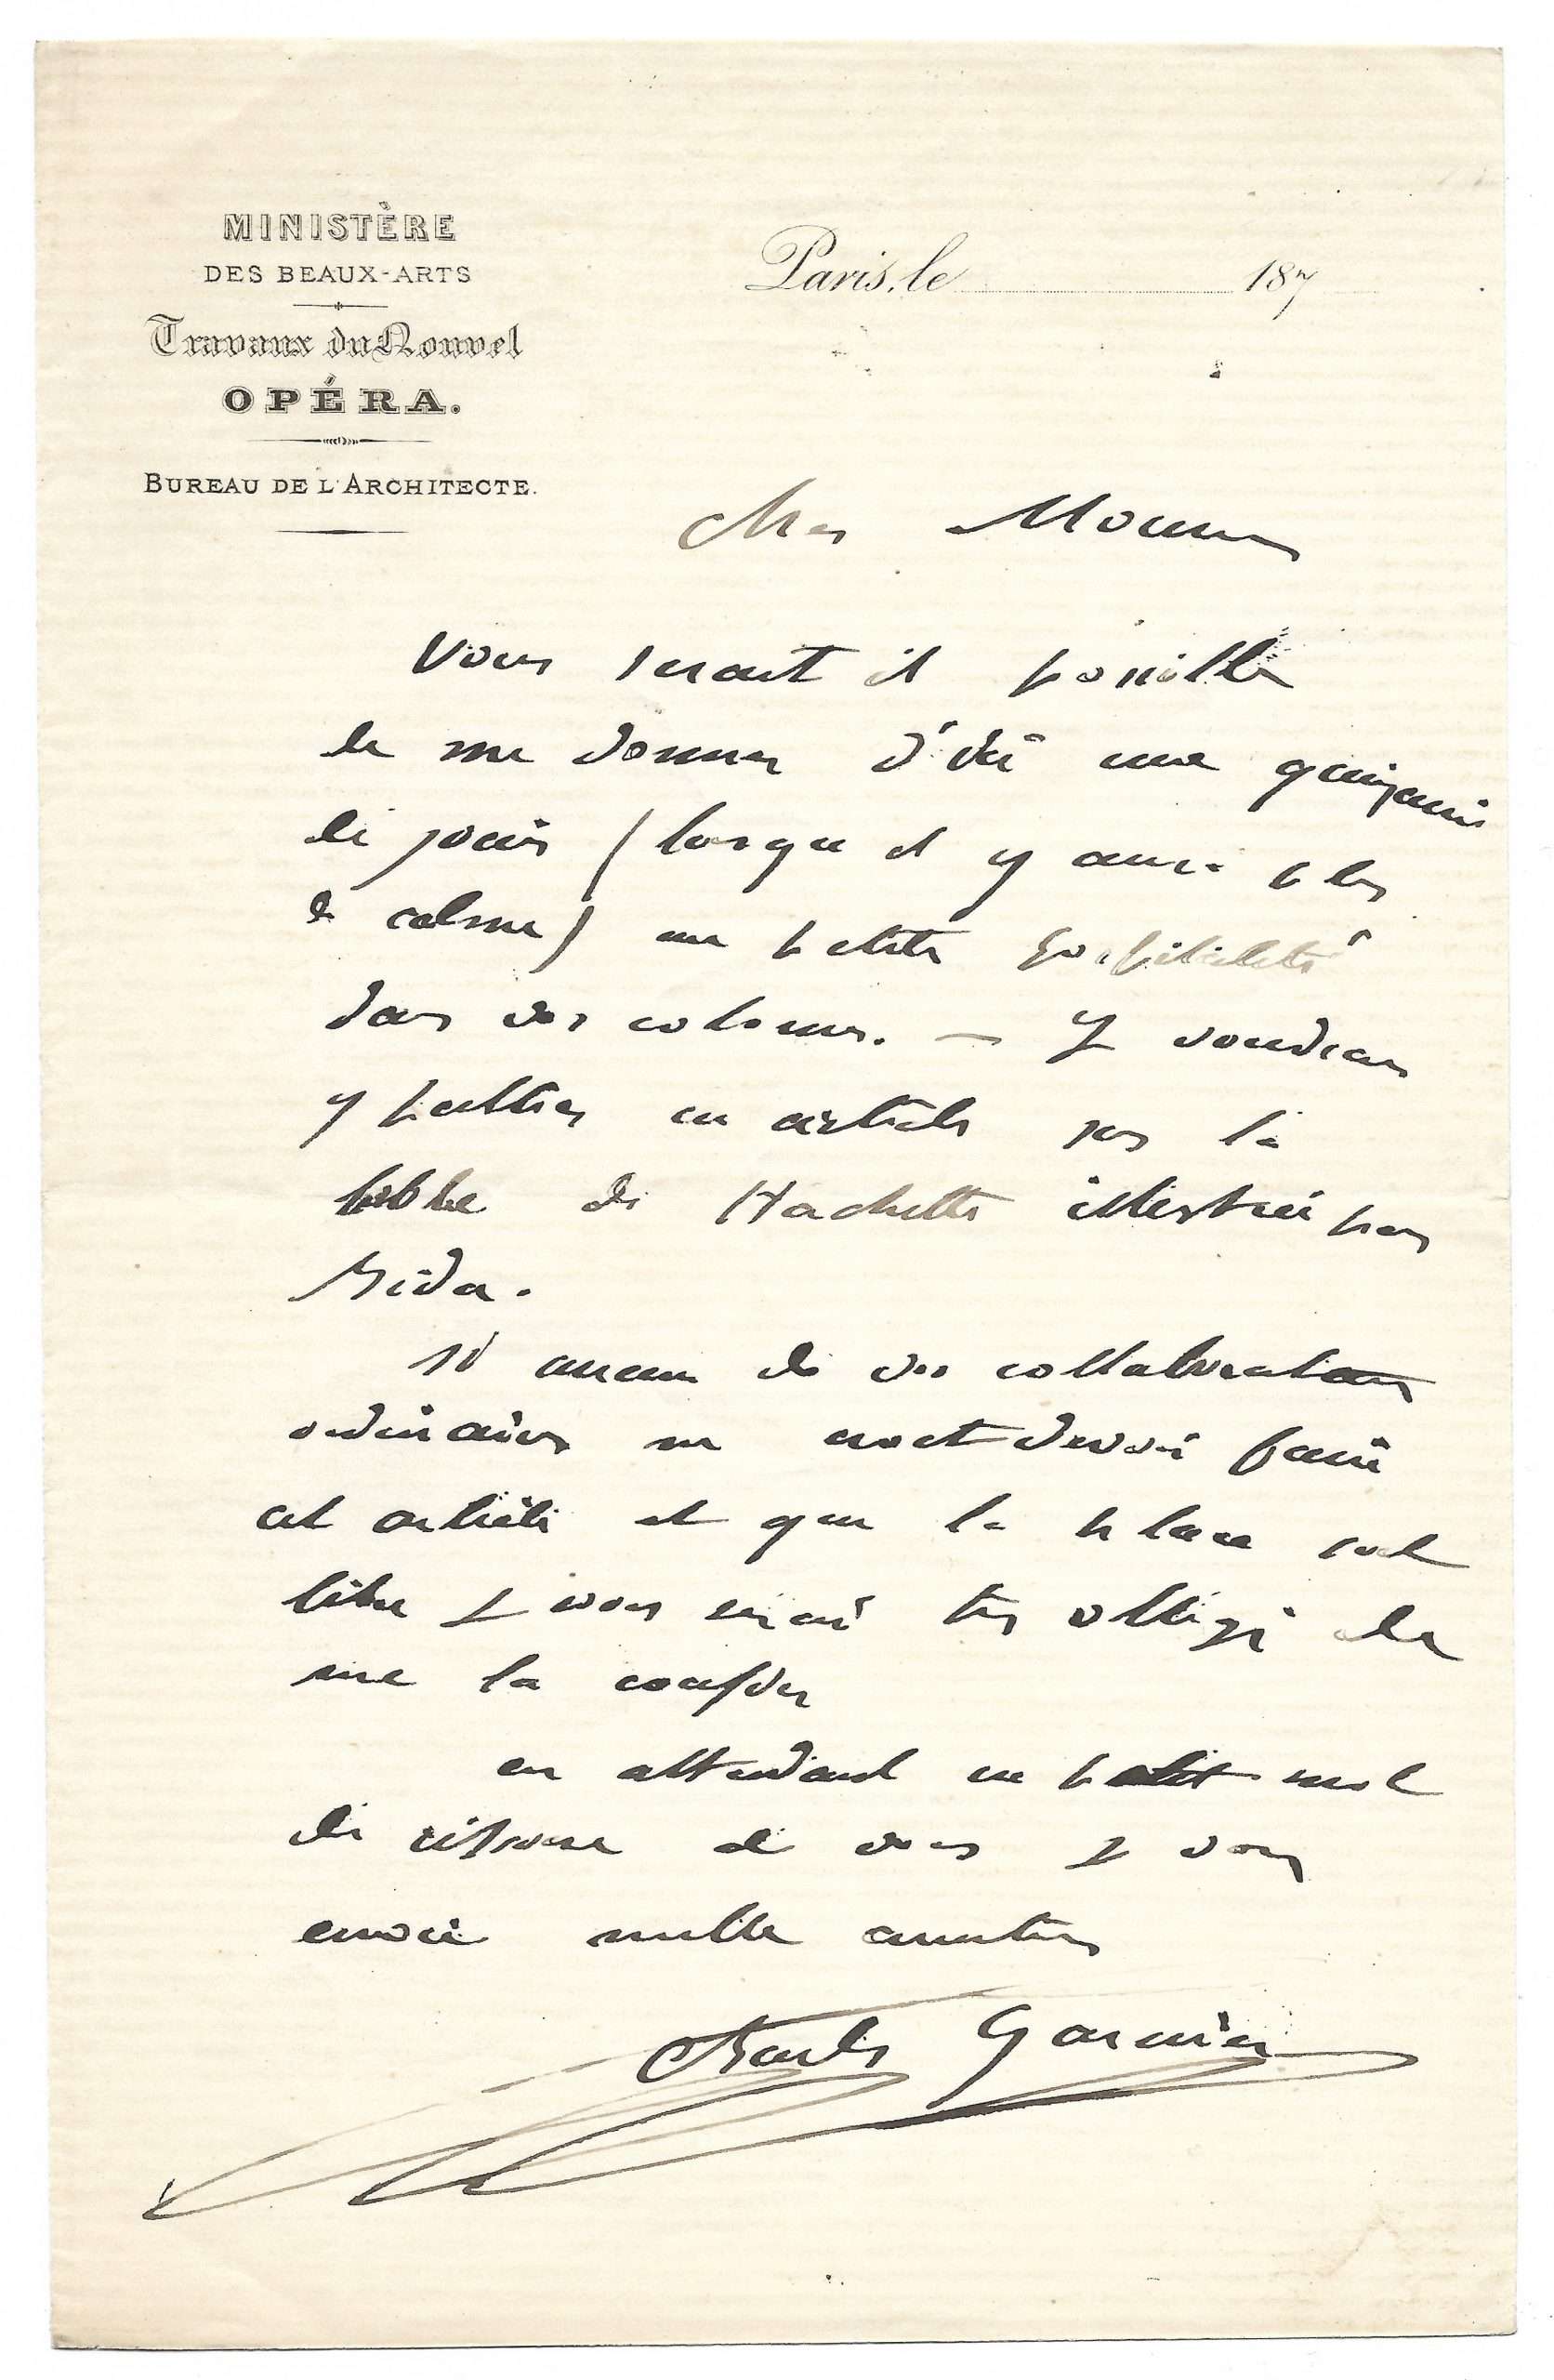 MINISTÈRE
DES BEAUX-ARTS
Travaux du Nouvel
OPÉRA.
BUREAU DE L'ARCHITECTE.
Paris, le 187
cher
Vous serait il possible
de me donner d'ici une quinzaine
de jours (lorsque il y aura plus
de calme) une petite hospitalité
dans vos colonnes. — Je voudrais
y publier un article sur la
bible de Hachette illustrée par
Bida.
si aucun de vos collaborateurs
ordinaires ne croit devoir faire
cet article et que la place soit
libre je vous serai très obligé de
me la confier
en attendant un petit mot
de réponse de vous je vous
envoie mille amitiés
Charles Garnier